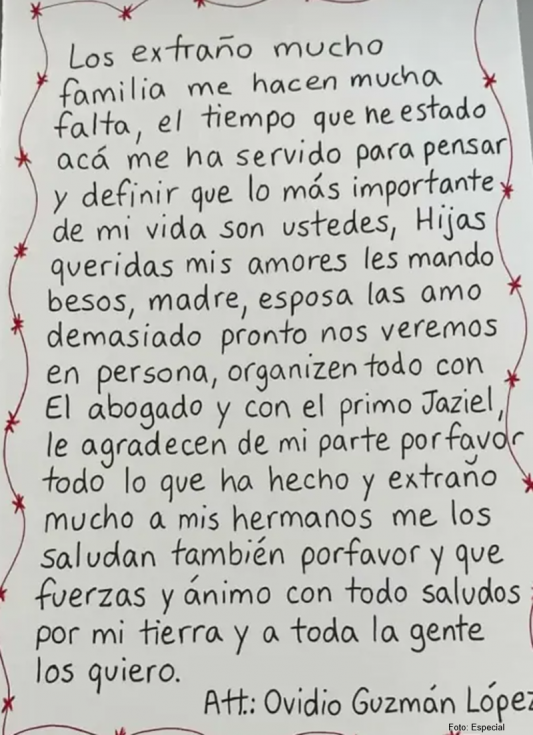 Los extraño mucho
familia me hacen mucha
falta, el tiempo que he estado
acá me ha servido para pensar
y definir que lo más importante
de mi vida son ustedes, Hijas
queridas mis amores les mando
besos, madre, esposa las amo
demasiado pronto nos veremos
en persona, organizen todo con
El abogado y con el primo Jaziel,
le agradecen de mi parte porfavor
todo lo que ha hecho y extraño
mucho a mis hermanos me los
saludan también porfavor y que
fuerzas y ánimo con todo saludos
por mi tierra y a toda la gente
los quiero.
Att.: Ovidio Guzmán López
Foto: Especial